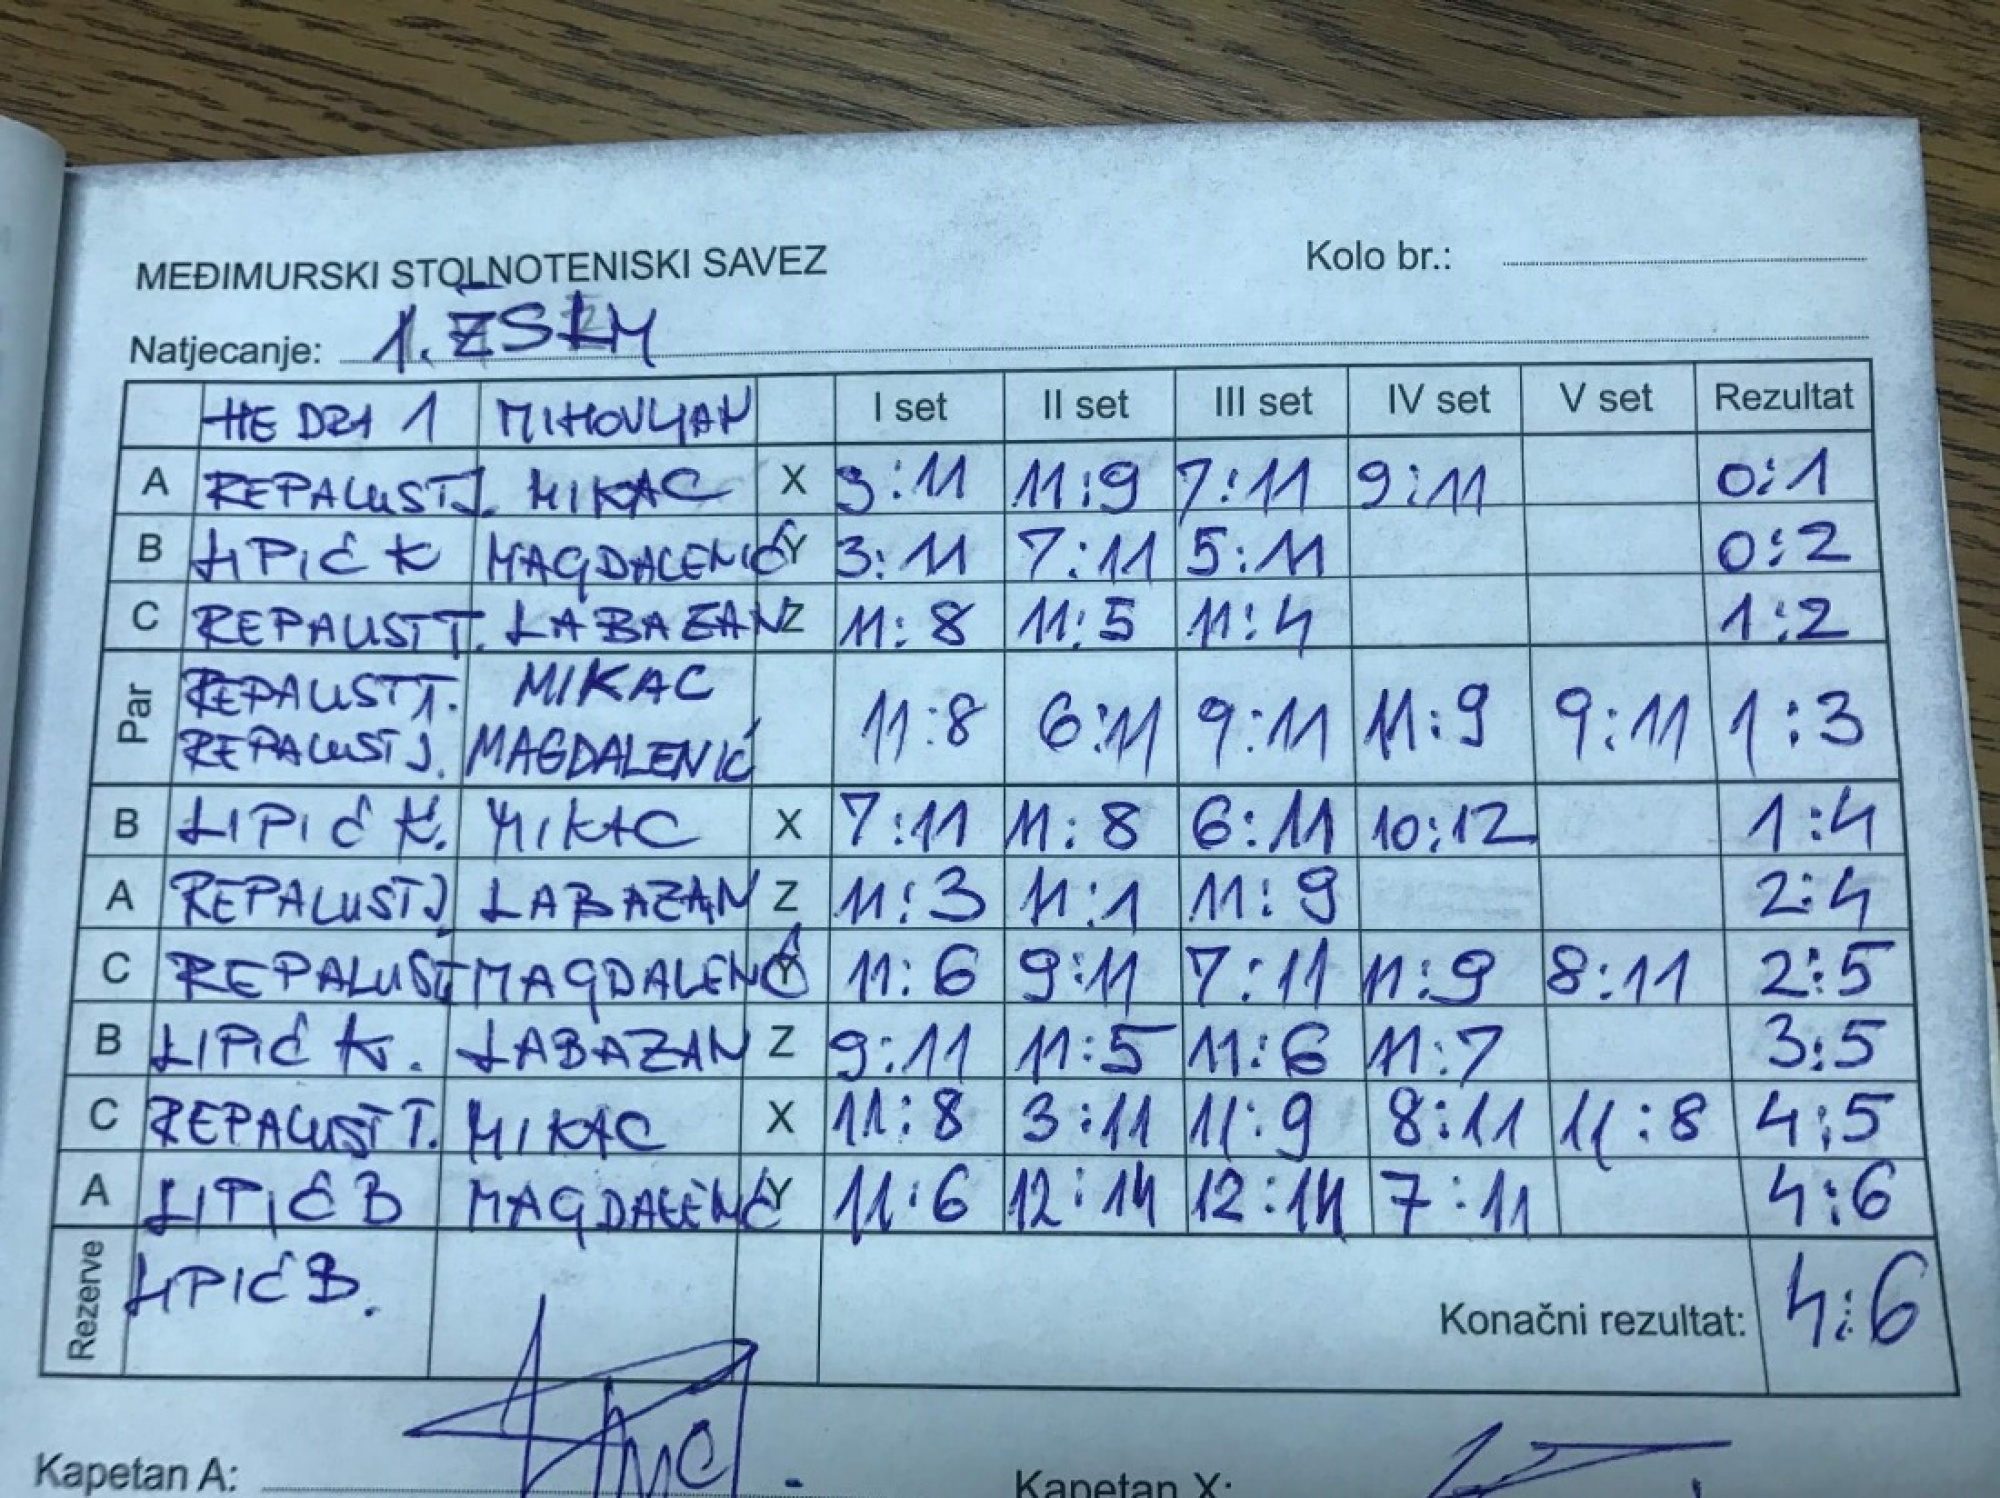 MEĐIMURSKI STOLNOTENISKI SAVEZ Kolo br.:
Natjecanje: 1. ŽSLM
MIHOVLJAN I set II set III set IV set V set Rezultat
A REPALUST J. MIKAC X 3:11 11:9 7:11 9:11 0:1
B LIPIĆ K MAGDALENIĆ Y 3:11 7:11 5:11 0:2
C REPALUST T. LABAZAN Z 11:8 11:5 11:4 1:2
Par REPALUST T. MIKAC 11:8 6:11 9:11 11:9 9:11 1:3
REPALUST J. MAGDALENIĆ
B LIPIĆ K. MIKAC X 7:11 11:8 6:11 10:12 1:4
A REPALUST J LABAZAN Z 11:3 11:1 11:9 2:4
C REPALUST MAGDALENIĆ Y 11:6 9:11 7:11 11:9 8:11 2:5
B LIPIĆ K. LABAZAN Z 9:11 11:5 11:6 11:7 3:5
C REPALUST T. MIKAC X 11:8 3:11 11:9 8:11 11:8 4:5
A LIPIĆ B MAGDALENIĆ Y 11:6 12:14 12:14 7:11 4:6
Rezerve LIPIĆ B. Konačni rezultat: 4:6
Kapetan A: Kapetan X: